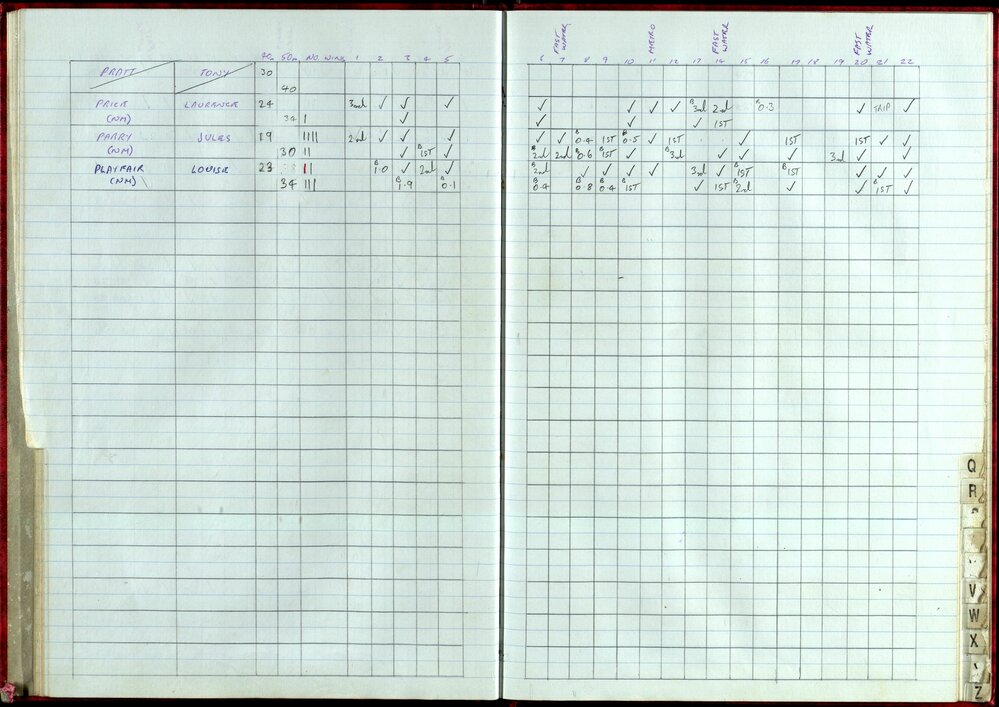 FAST WATER METRO FAST WATER FAST WATER
50m NO. WINS 1 2 3 4 5 6 7 8 9 10 11 12 13 14 15 16 17 18 19 20 21 22
PRATT TONY 30
40
PRICE LAURANCE 24 3rd ✓ ✓ ✓ ✓ ✓ ✓ ✓ B 3rd 2nd B 0.3 ✓ TRIP ✓
(NM) 34 | ✓ ✓ ✓ ✓ 1ST
PARRY JULES 29 |||| 2nd ✓ ✓ ✓ ✓ ✓ B 0.4 1ST B 0.5 ✓ 1ST ✓ 1ST 1ST ✓ ✓
(NM) 30 || ✓ B 1ST ✓ B 2nd 2nd B 0.6 B 1ST ✓ B 3rd ✓ ✓ ✓ 3rd ✓ ✓
PLAYFAIR LOUISE 23 || B 1.0 ✓ 2nd ✓ B 2nd ✓ ✓ ✓ ✓ 3rd ✓ B 1ST B 1ST ✓ ✓ ✓
(NM) 34 ||| B 1.9 B 0.1 B 0.4 B 0.8 B 0.4 B 1ST ✓ 1ST B 2nd ✓ ✓ B 1ST ✓
Q
R
V
W
X
Z